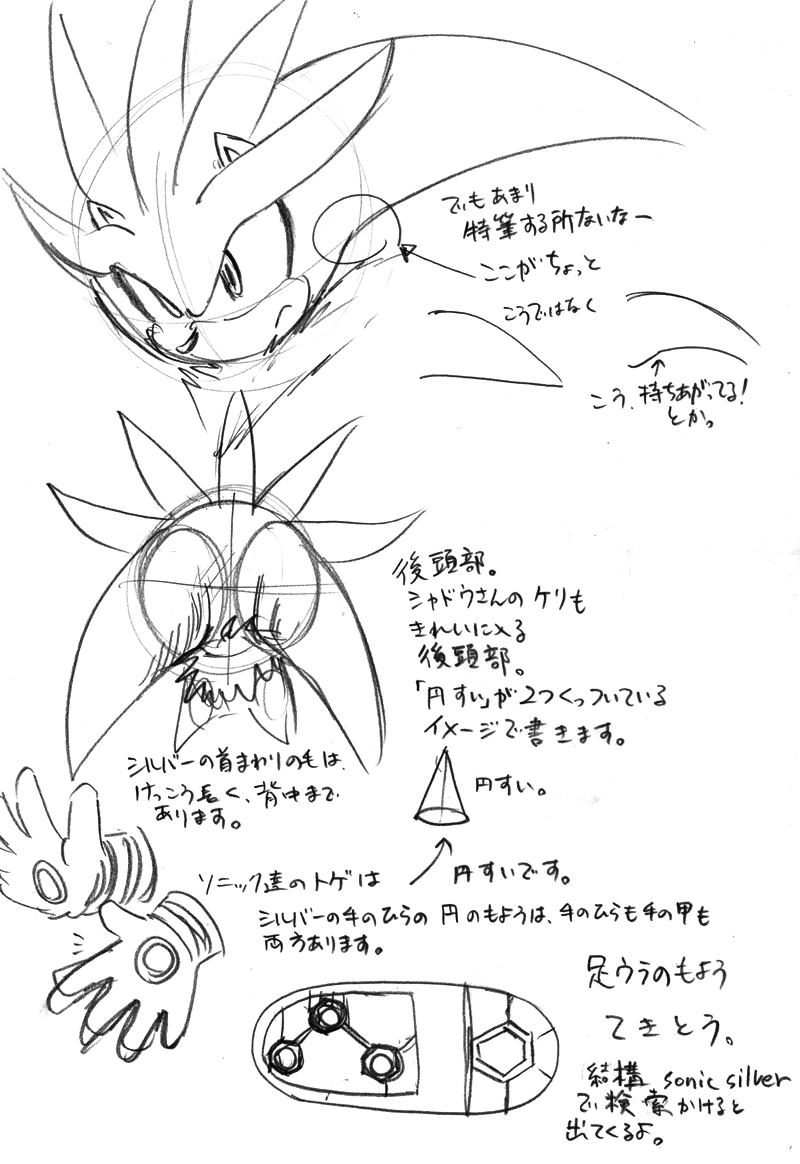 でもあまり
特筆する所ないなー
ここがちょっと
こうではなく
こう、持ちあがってる!
とかっ
後頭部。
シャドウさんのケリも
きれいに入る
後頭部。
「円すい」が2つくっついている
イメージで書きます。
シルバーの首まわりの毛は、
けっこう長く、背中まで
あります。
円すい。
ソニック達のトゲは
円すいです。
シルバーの手のひらの円のもようは、手のひらも手の甲も
両方あります。
足ウラのもよう
てきとう。
結構 sonic silver
で検索かけると
出てくるよ。